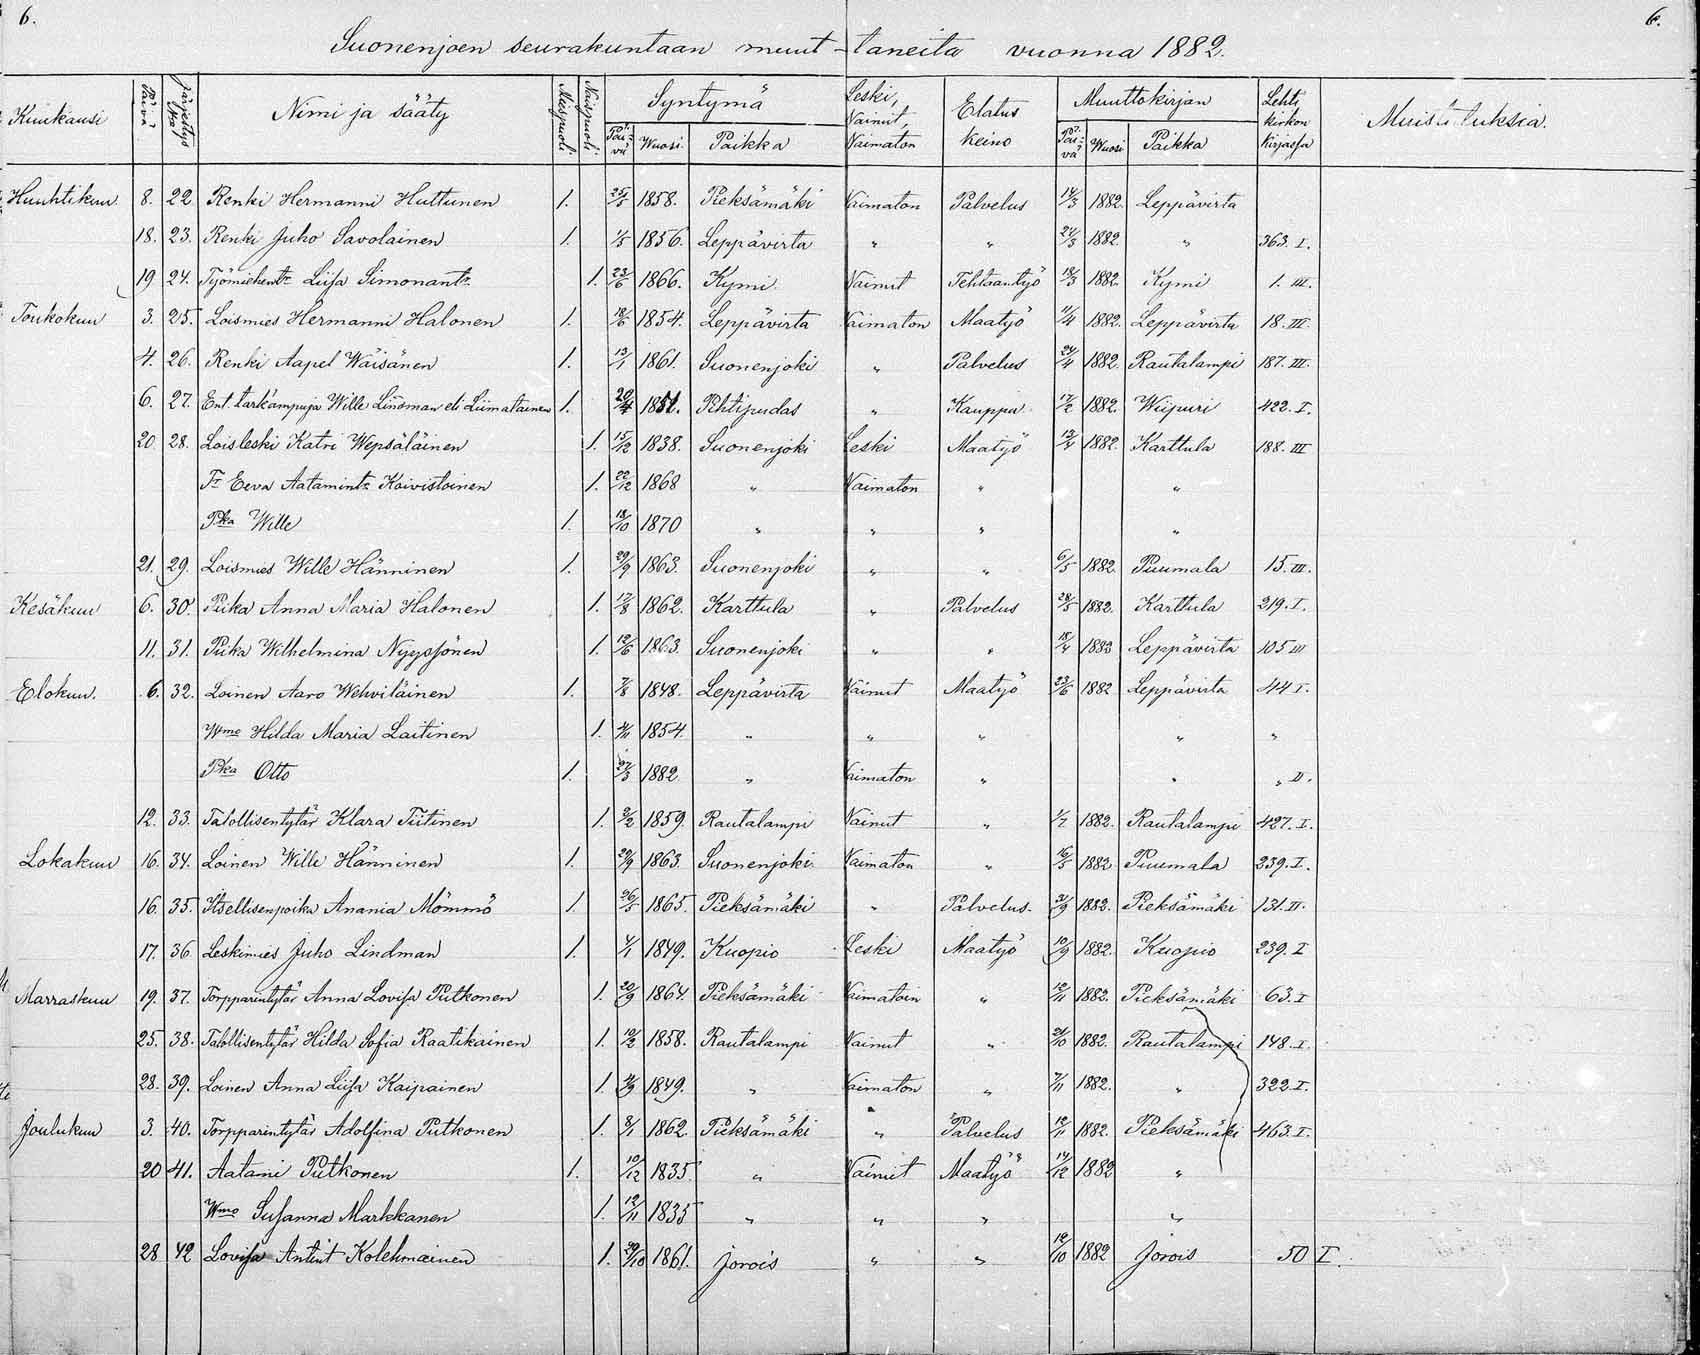 6. 6.
Suonenjoen seurakuntaan muut-taneita vuonna 1882.
Kuukausi Päivä Järjestys N:o Nimi ja sääty Miespuoli. Naispuoli. Syntymä Leski, Nainut, Naimaton Elatus keino Muuttokirjan Lehti kirkon kirjassa Muistutuksia.
Päivä Wuosi. Paikka Päivä Wuosi Paikka
Huuhtikuu 8. 22 Renki Hermanni Huttunen 1. 25/5 1858. Pieksämäki Naimaton Palvelus 14/3 1882. Leppävirta
18. 23. Renki Juho Savolainen 1. 1/5 1856. Leppävirta " " 24/3 1882. " 363. I.
19 24. Työmiehentr Liisa Simonantr 1. 23/6 1866. Kymi Nainut Tehtaantyö 18/3 1882. Kymi 1. III.
Toukokuu 3. 25. Loismies Hermanni Halonen 1. 18/6 1854. Leppävirta Naimaton Maatyö 11/4 1882. Leppävirta 18. III.
4. 26. Renki Aapel Wäisänen 1. 13/1 1861. Suonenjoki " Palvelus 24/4 1882. Rautalampi 187. III.
6. 27. Ent. tark'ampuja Wille Linsman eli Liimatainen 1. 20/4 1851. Pihtipudas " Kauppa 17/2 1882. Wiipuri 422. I.
20 28. Loisleski Katri Wepsäläinen 1. 15/12 1838. Suonenjoki Leski Maatyö 13/4 1882. Karttula 188. III
Tr Eeva Aatamintr Koivistoinen 1. 22/12 1868 " Naimaton " "
Pka Wille 1. 18/10 1870 " " " "
21. 29. Loismies Wille Hänninen 1. 29/9 1863. Suonenjoki " " 6/5 1882. Puumala 15. III.
Kesäkuu 6. 30. Piika Anna Maria Halonen 1. 17/8 1862. Karttula " Palvelus 28/5 1882. Karttula 219. I.
11. 31. Piika Wilhelmina Nyyssönen 1. 12/6 1863. Suonenjoki " " 18/4 1883 Leppävirta 105 III
Elokuu. 6. 32. Loinen Aaro Wehviläinen 1. 7/8 1848. Leppävirta Nainut Maatyö 23/6 1882 Leppävirta 44 I.
Wmo Hilda Maria Laitinen 1. 1854. " " " " "
Pka Otto 1. 27/3 1882. " Naimaton " " " II.
12. 33. Talollisentytär Klara Tiitinen 1. 2/2 1859. Rautalampi Nainut " 1/7 1882. Rautalampi 427. I.
Lokakuu 16. 34. Loinen Wille Hänninen 1. 29/9 1863. Suonenjoki Naimaton " 16/5 1882. Puumala 239. I.
16. 35. Itsellisenpoika Anania Mömmö 1. 26/5 1865. Pieksämäki " Palvelus. 21/9 1882. Pieksämäki 131. II.
17. 36 Leskimies Juho Lindman 1. 4/1 1849. Kuopio Leski Maatyö 10/9 1882. Kuopio 239. I
Marraskuu 19. 37. Torpparintytär Anna Lovisa Putkonen 1. 20/9 1864. Pieksämäki Naimatoin " 12/11 1882. Pieksämäki 63. I
25. 38. Talollisentytär Hilda Sofia Raatikainen 1. 12/2 1858. Rautalampi Nainut " 21/10 1882. Rautalampi 148. I.
28. 39. Loinen Anna Liisa Kaipainen 1. 1849. " Naimaton " 7/11 1882. " 322. I.
Joulukuu 3. 40. Torpparintytär Adolfina Putkonen 1. 8/1 1862. Pieksämäki " Palvelus 12/11 1882. Pieksämäki 463. I.
20 41. Aatami Putkonen 1. 10/12 1835. " Nainut Maatyö 14/12 1882 "
Wmo Susanna Markkanen 1. 12/11 1835 " " " "
28 42 Lovisa Antint Kolehmainen 1. 29/10 1861. Jorois " " 12/10 1882 Jorois 50 I.